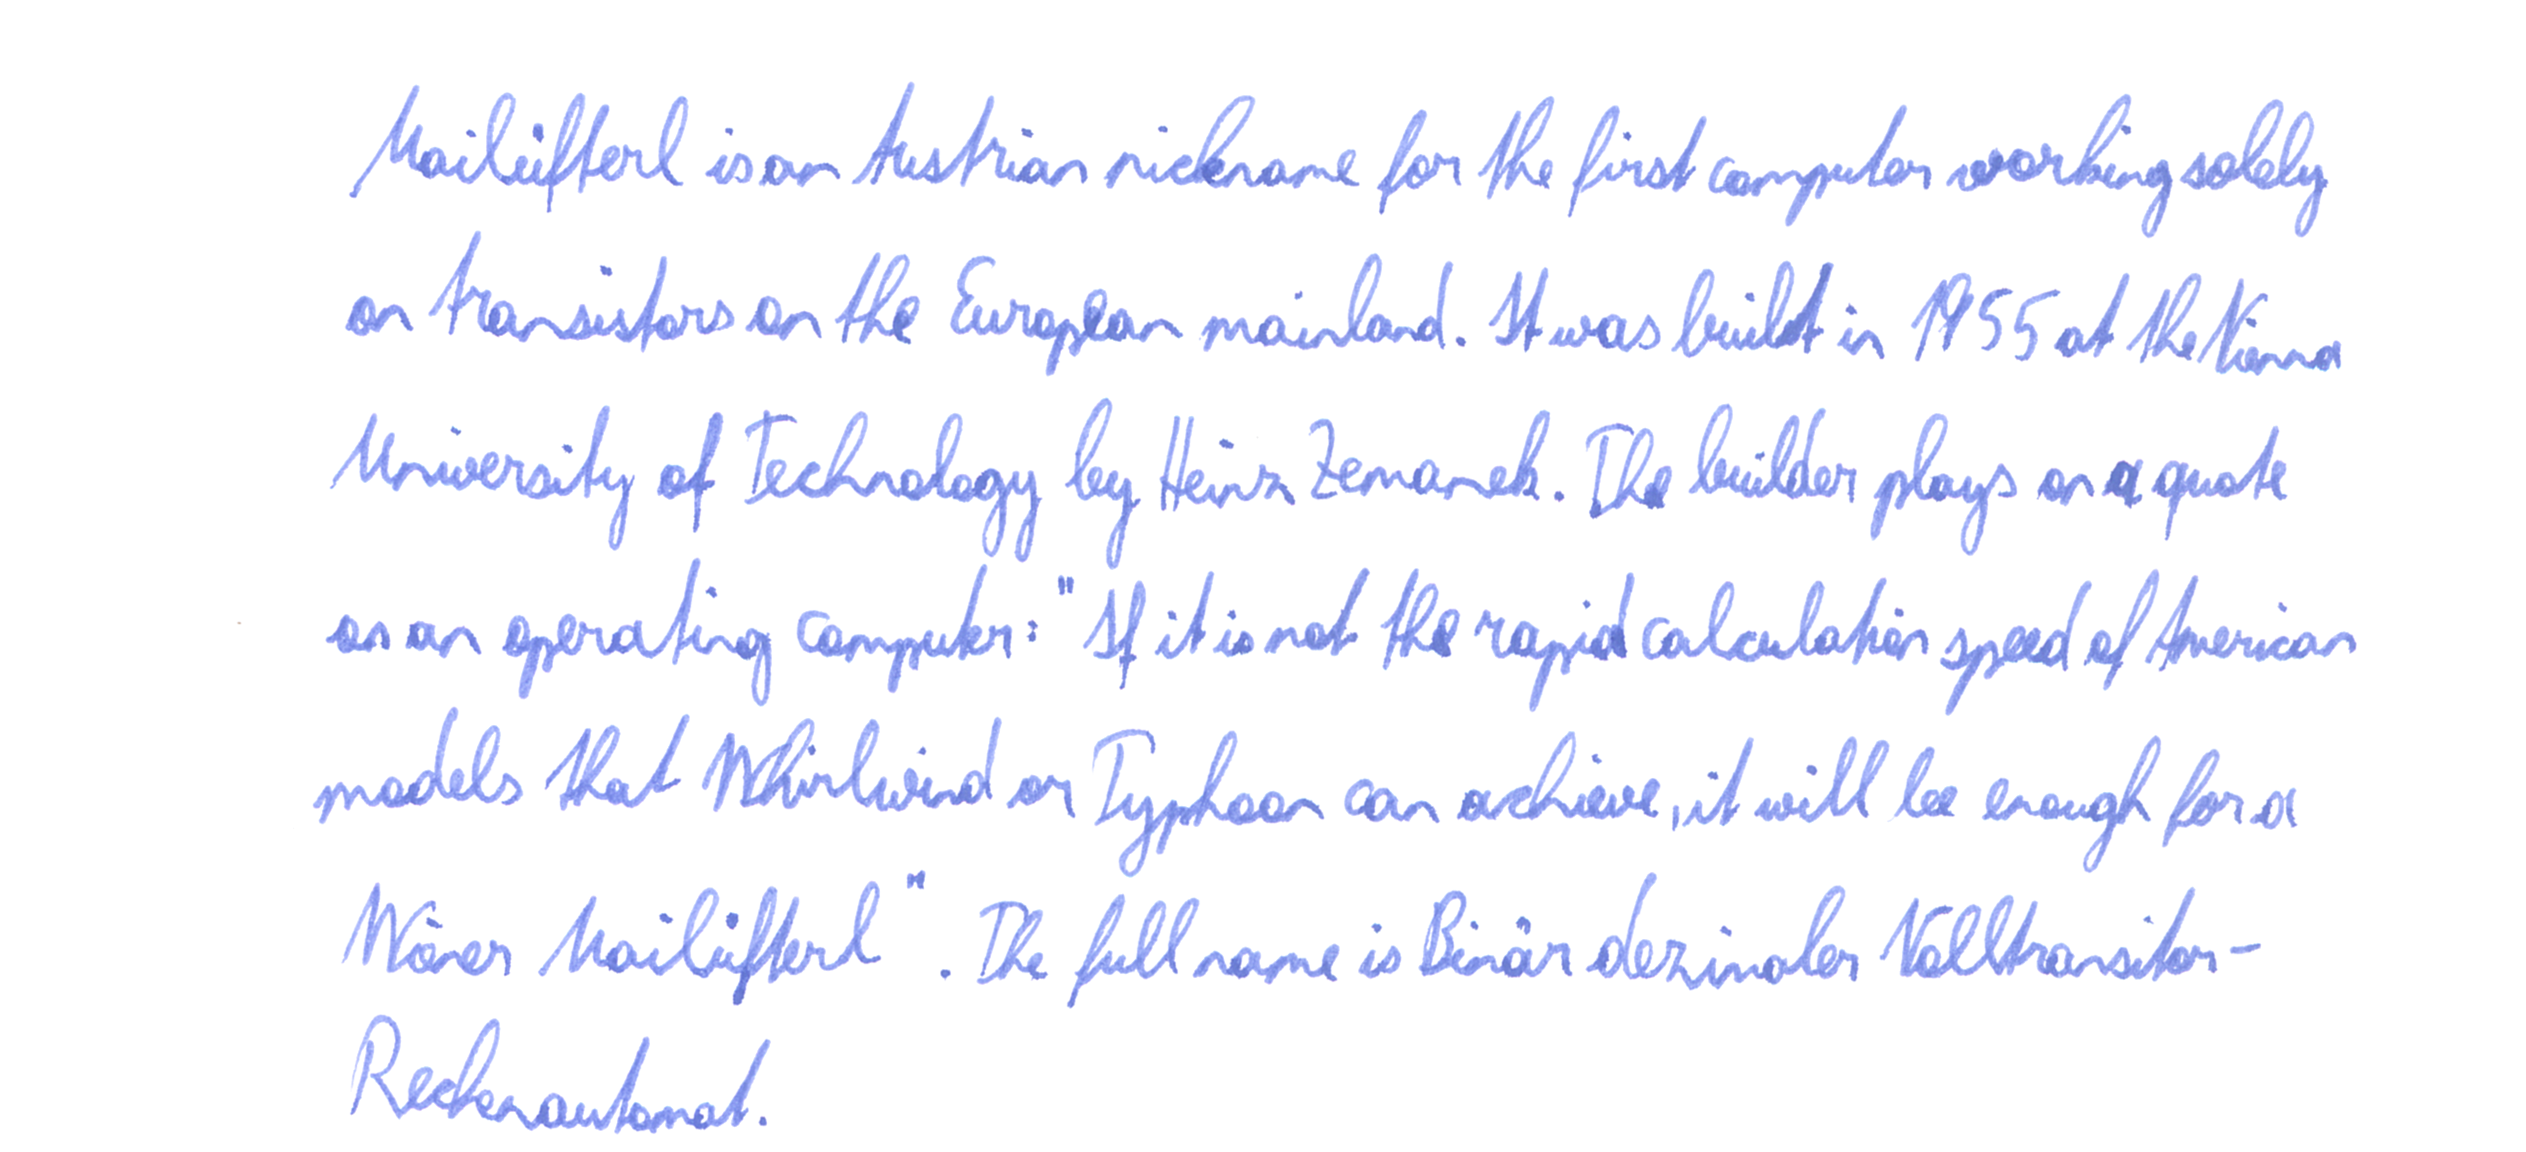 Mailüfterl is an Austrian nickname for the first computer working solely
on transistors on the European mainland. It was built in 1955 at the Vienna
University of Technology by Heinz Zemanek. The builder plays on a quote
as an operating computer: "If it is not the rapid calculation speed of American
models that Whirlwind or Typhoon can achieve, it will be enough for a
Wiener Mailüfterl". The full name is Binär dezimaler Volltransitor-
Rechenautomat.